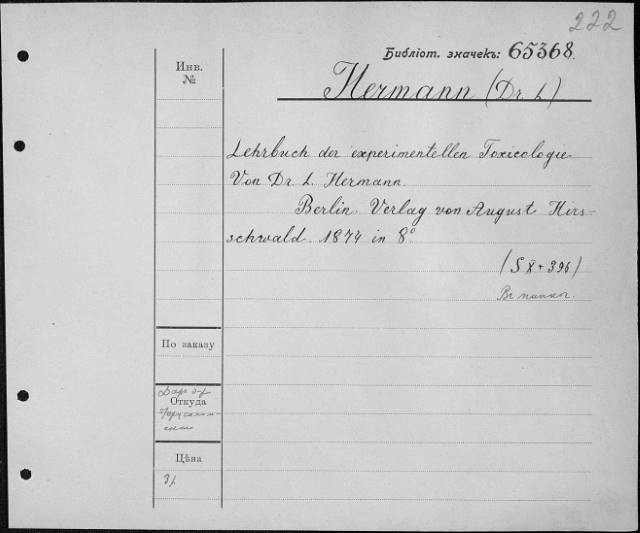 222
Библіот. значекъ: 65368.
Инв.
№
Hermann (Dr. L.)
Lehrbuch der experimentellen Toxicologie
Von Dr. L. Hermann.
Berlin. Verlag von August Hirs-
schwald. 1874 in 8°
(S X + 396)
Въ папкѣ.
По заказу
Даръ д-ра
Откуда
Цѣна